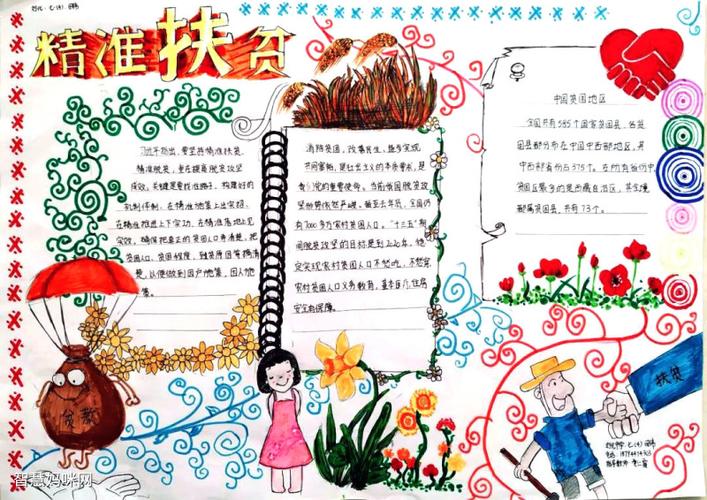 精准扶贫
习近平指出，要坚持精准扶贫、
精准脱贫，重在提高脱贫攻坚
成效。关键是要找准路子、构建好的
机制体制，在精准施策上出实招、
在精准推进上下实功、在精准落地上见
实效，确保把真正的贫困人口弄清楚，把
贫困人口、贫困程度、致贫原因等搞清
楚，以便做到因户施策、因人施
策。
消除贫困，改善民生，逐步实现
共同富裕，是社会主义的本质要求，是
我们党的重要使命。当前我国脱贫攻
坚形势依然严峻。截至去年底，全国仍
有7000多万农村贫困人口。"十三五"期
间脱贫攻坚的目标是到2020年，稳
定实现农村贫困人口不愁吃、不愁穿，
农村贫困人口义务教育、基本医疗、住房
安全有保障。
中国贫困地区
全国共有585个国家贫困县，各贫
困县部分布在中国中西部地区，其
中西部省份占375个。在所有省份中，
贫困区最多的是西藏自治区，其全境
都属贫困县，共有73个。
贫穷
扶贫
智慧妈咪网